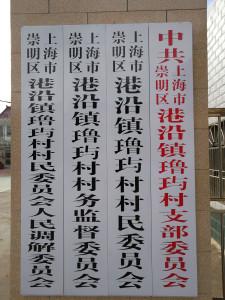 中共上海市崇明区港沿镇鲁玙村支部委员会
上海市崇明区港沿镇鲁玙村村民委员会
上海市崇明区港沿镇鲁玙村村务监督委员会
上海市崇明区港沿镇鲁玙村村民委员会人民调解委员会